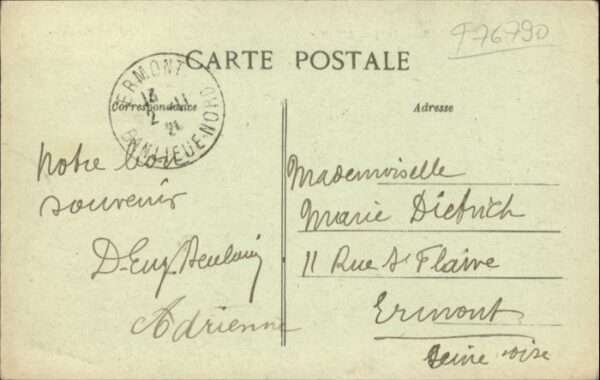 976790
CARTE POSTALE
ERMONT
BANLIEUE-NORD
13 11
2
21
Correspondance
Adresse
Notre bon
souvenir
Adrienne
Mademoiselle
Marie Dietrich
11 Rue St Flaive
Ermont
Seine oise